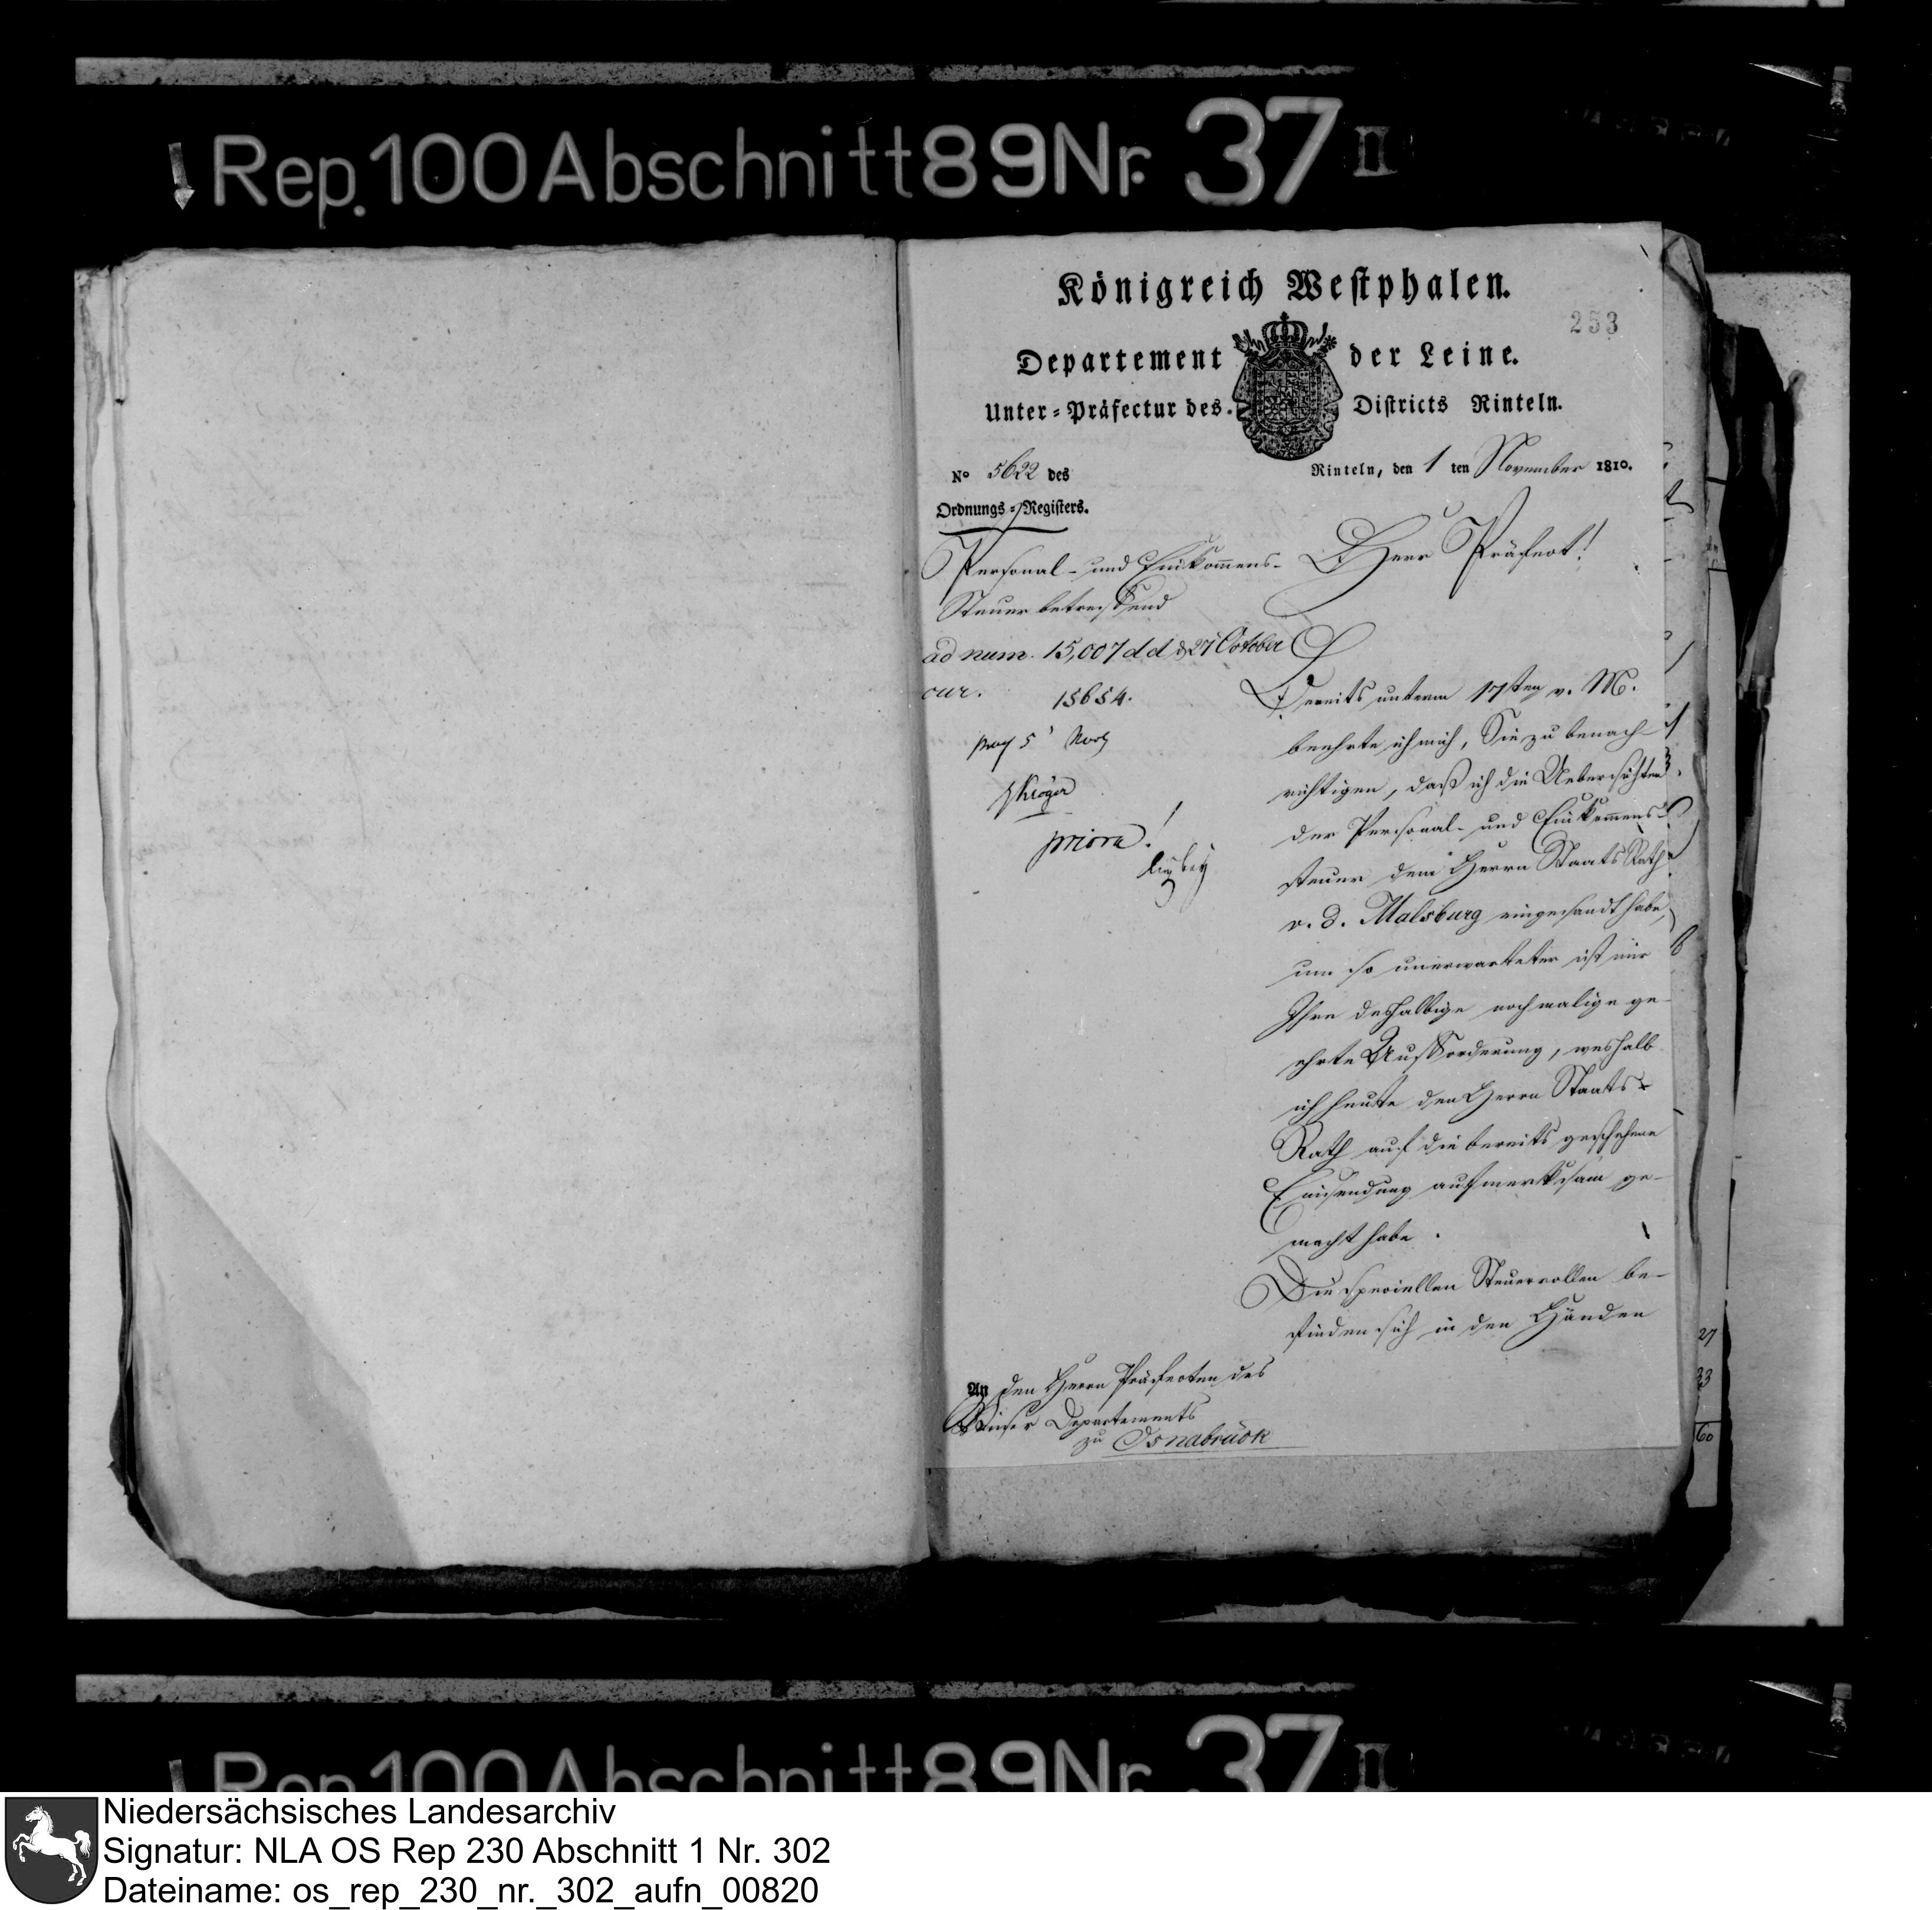 Rep. 100 Abschnitt 89 Nr. 37 II
Königreich Westphalen.
253
Departement der Leine.
Unter-Präfectur des Districts Rinteln.
No 5622 des
Ordnungs-Registers.
Rinteln, den 1 ten November 1810.
Personal- und Einkommens-
Steuer betreffend
ad num. 15,007 d d d 27 October
cur.
15654.
5 Nov
Kröger
priora!
Herr Präfect!
Bereits unterm 17ten v. M.
beehrte ich mich, Sie zu benach-
richtigen, daß ich die Uebersichten
der Personal- und Einkommens-
steuer dem Herrn Staats Rath
v. d. Malsburg eingesandt habe,
um so unerwarteter ist mir
Ihre deshalbige nochmalige ge-
ehrte Aufforderung, weshalb
ich heute den Herrn Staats-
Rath auf die bereits geschehene
Einsendung aufmerksam ge-
macht habe.
Die speciellen Steuerrollen be-
finden sich in den Händen
An den Herrn Präfecten des
Weser Departements
zu Osnabrück
27
33
60
Rep. 100 Abschnitt 89 Nr. 37 II
Niedersächsisches Landesarchiv
Signatur: NLA OS Rep 230 Abschnitt 1 Nr. 302
Dateiname: os_rep_230_nr._302_aufn_00820